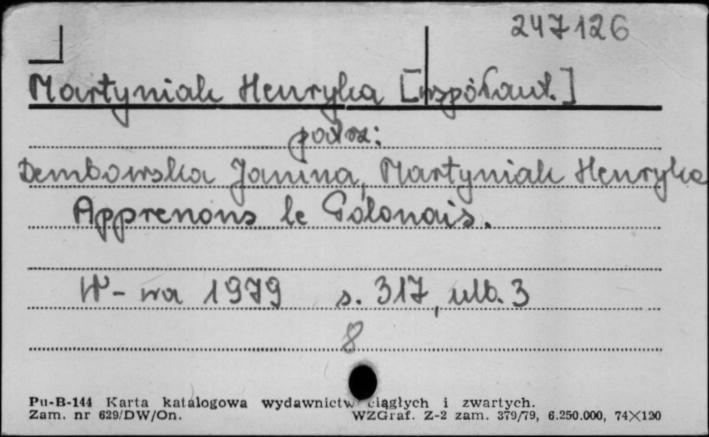 247126
Martyniak Henryka [współaut.]
patrz:
Dembowska Janina, Martyniak Henryka
Apprenons le Polonais.
W-wa 1979 s. 317, ulb. 3
8
Pu-B-144 Karta katalogowa wydawnictw ciągłych i zwartych.
Zam. nr 629/DW/On. WZGraf. Z-2 zam. 379/79, 6.250.000, 74×120